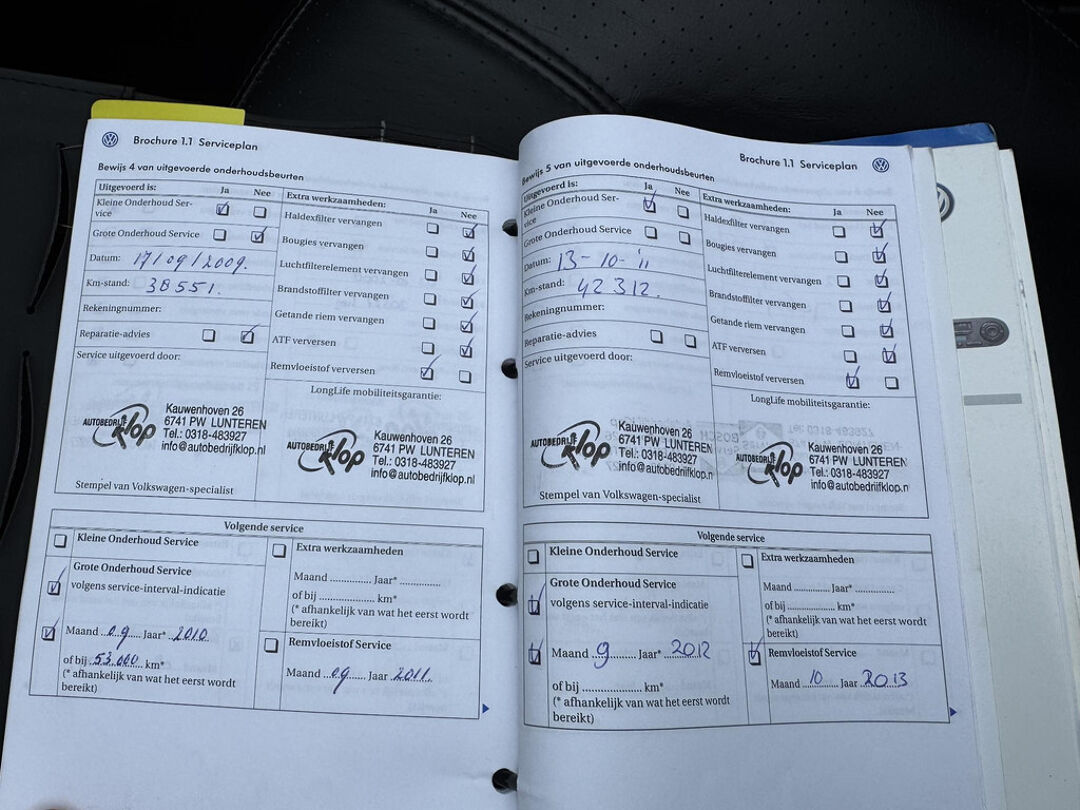 Brochure 1.1 Serviceplan
Bewijs 4 van uitgevoerde onderhoudsbeurten
Uitgevoerd is: Ja Nee
Kleine Onderhoud Ser-
vice
Grote Onderhoud Service
Datum: 17/09/2009.
Km-stand: 38551.
Rekeningnummer:
Reparatie-advies
Service uitgevoerd door:
Extra werkzaamheden: Ja Nee
Haldexfilter vervangen
Bougies vervangen
Luchtfilterelement vervangen
Brandstoffilter vervangen
Getande riem vervangen
ATF verversen
Remvloeistof verversen
LongLife mobiliteitsgarantie:
AUTOBEDRIJF Klop
Kauwenhoven 26
6741 PW LUNTEREN
Tel.: 0318-483927
info@autobedrijfklop.nl
Stempel van Volkswagen-specialist
AUTOBEDRIJF Klop
Kauwenhoven 26
6741 PW LUNTEREN
Tel.: 0318-483927
info@autobedrijfklop.nl
Volgende service
Kleine Onderhoud Service
Grote Onderhoud Service
volgens service-interval-indicatie
Maand 09 Jaar* 2010
of bij 53.000 km*
(* afhankelijk van wat het eerst wordt
bereikt)
Extra werkzaamheden
Maand .............. Jaar* ..............
of bij ...................... km*
(* afhankelijk van wat het eerst wordt
bereikt)
Remvloeistof Service
Maand 09 Jaar 2011.
Brochure 1.1 Serviceplan
Bewijs 5 van uitgevoerde onderhoudsbeurten
Uitgevoerd is: Ja Nee
Kleine Onderhoud Ser-
vice
Grote Onderhoud Service
Datum: 13-10-'11
Km-stand: 42312.
Rekeningnummer:
Reparatie-advies
Service uitgevoerd door:
Extra werkzaamheden: Ja Nee
Haldexfilter vervangen
Bougies vervangen
Luchtfilterelement vervangen
Brandstoffilter vervangen
Getande riem vervangen
ATF verversen
Remvloeistof verversen
LongLife mobiliteitsgarantie:
AUTOBEDRIJF Klop
Kauwenhoven 26
6741 PW LUNTEREN
Tel.: 0318-483927
info@autobedrijfklop.n
Stempel van Volkswagen-specialist
AUTOBEDRIJF Klop
Kauwenhoven 26
6741 PW LUNTEREN
Tel.: 0318-483927
info@autobedrijfklop.n
Volgende service
Kleine Onderhoud Service
Grote Onderhoud Service
volgens service-interval-indicatie
Maand 9 Jaar* 2012
of bij ...................... km*
(* afhankelijk van wat het eerst wordt
bereikt)
Extra werkzaamheden
Maand .............. Jaar* ..............
of bij ...................... km*
(* afhankelijk van wat het eerst wordt
bereikt)
Remvloeistof Service
Maand 10 Jaar 2013